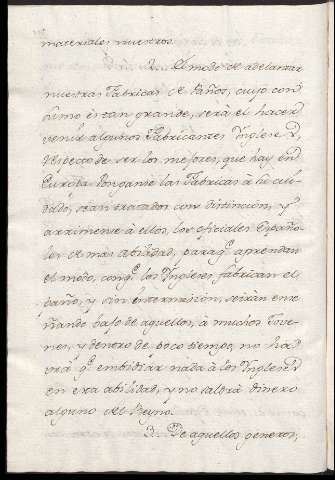 materiales nuestros.
2. El modo de adelantar
nuestras Fabricas de Paños, cuyo con
sumo es tan grande, será el hacer
venir algunos Fabricantes Ingleses,
respecto de ser los mejores, que hay en
Europa pongame las Fabricas à su cui
dado, sean tratados con distincion, y
arrimense à ellos, los oficiales Españo
les de mas abilidad, paraq.e aprendan
el modo, conq.e los Ingleses fabrican el
paño, y con extension, seiran ense
ñando bajo de aquellos, à muchos Jove
nes, y dentro de poco tiempo, no ha
vrà q.e embidiar nada à los Ingleses
en esa abilidad, y no saldrà dinero
alguno del Reyno.
3. De aquellos generos,